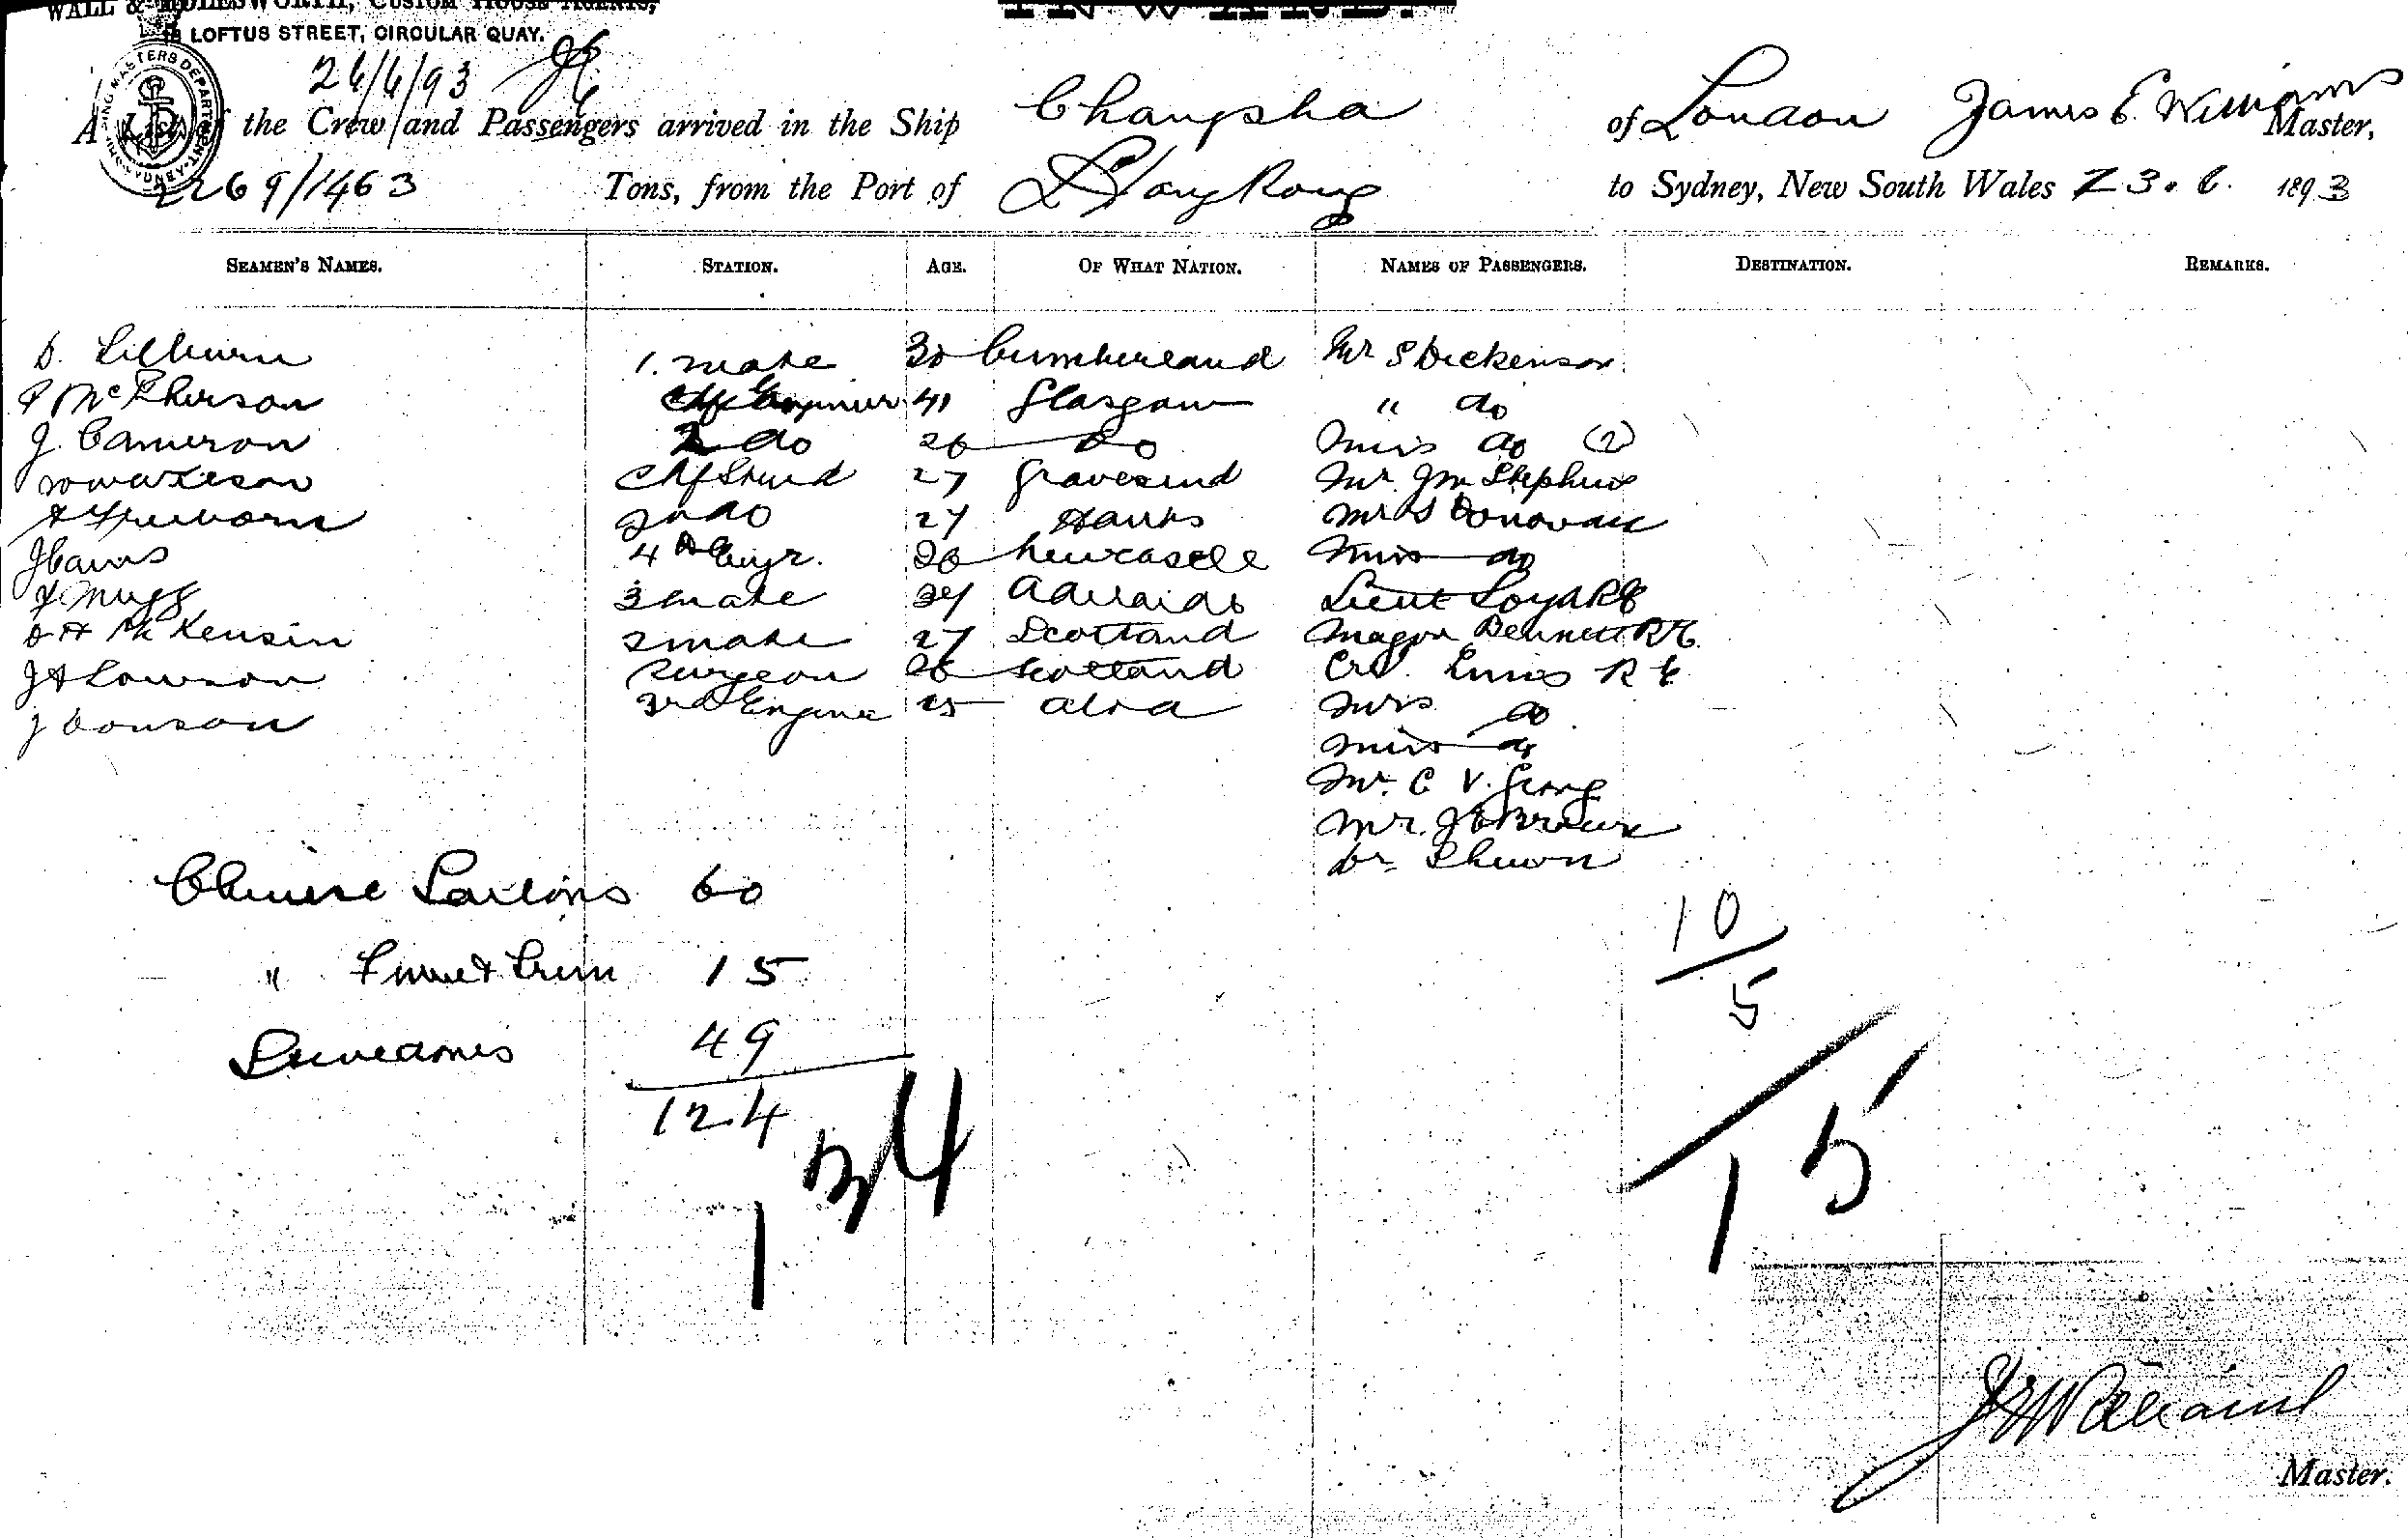 WALL & HOLESWORTH, CUSTOM HOUSE AGENTS,
18 LOFTUS STREET, CIRCULAR QUAY.
INWARD.
26/6/93
A List of the Crew and Passengers arrived in the Ship Changsha of London James E. Williams Master,
2269/1463 Tons, from the Port of Hong Kong to Sydney, New South Wales 23.6. 1893
SEAMEN'S NAMES. STATION. AGE. OF WHAT NATION. NAMES OF PASSENGERS. DESTINATION. REMARKS.
D. Lilburn 1. mate 30 Cumberland Mr S Dickenson
McPherson Chf Engineer 41 Glasgow " do
J. Cameron 2 do 26 do Miss do (2)
Chf Stwd 27 Gravesend Mr. Jm Stephens
A Freeborn 2nd do 27 Hants Mrs Donovan
J Cairns 4th Engr. 26 Newcastle Miss do
3 mate 24 Adelaide Lieut Loyd RE
D H McKensin 2 mate 27 Scotland Major Bennett RE
J A Lowson Surgeon 26 Scotland Col. RE
J Donson 3rd Engine 25 Aloa Mrs do
Miss do
Mr. C. V. George
Mr. J E Brown
Dr
Chinese Sailors 60
" Fire & Trim 15
49
124
134
10
5
15
Master.